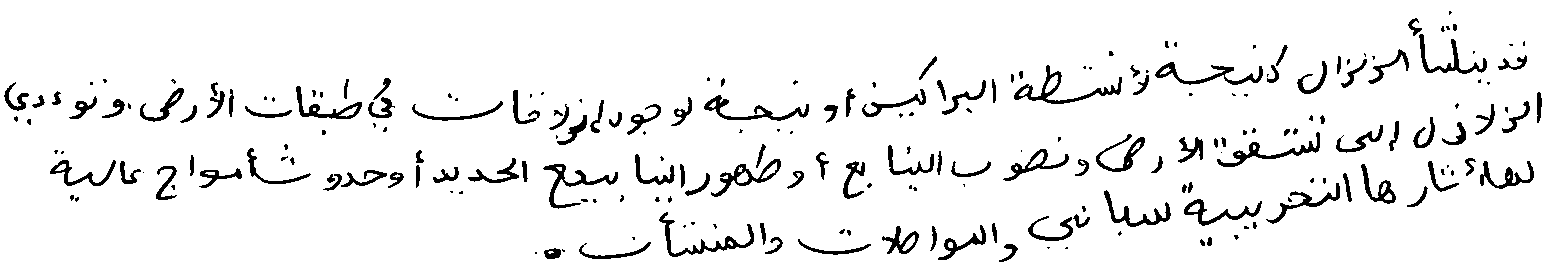 قد ينشأ الزلزال كنيجة لأنشطة البراكين أو نتيجة لوجود انزلاقات في طبقات الأرض. وتؤدي
الزلازل إلى تشقق الأرض ونضوب الينابع أو ظهور الينابيع الجديد أو حدوث أمواج عالية
لها أثارها التخريبية للمباني والمواصلات والمنشأت .